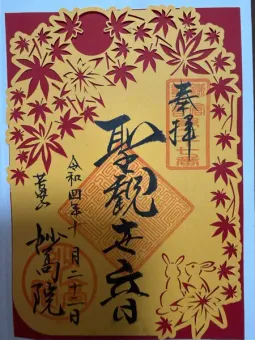 奉拝
聖観世音
令和四年十月二十二日
妙高院